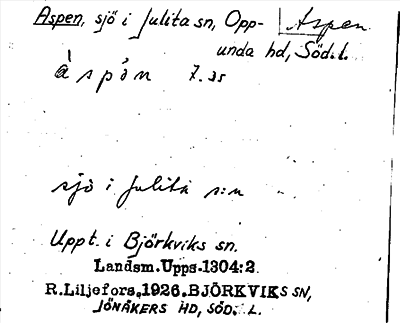 Aspen, sjö i Julita sn, Opp-
unda hd, Söd. l.
Aspen
àspǻn
sjö i Julita s:n
Uppt. i Björkviks sn.
Landsm.Upps.1304:2.
R.Liljefors.1926.BJÖRKVIKS SN,
JÖNÅKERS HD, SÖD. L.